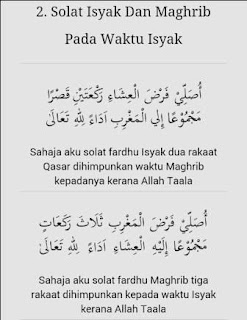 2. Solat Isyak Dan Maghrib
Pada Waktu Isyak
أُصَلِّيْ فَرْضَ الْعِشَاءِ رَكْعَتَيْنِ قَصْرًا
مَجْمُوْعًا إِلىَ الْمَغْرِبِ اَدَاءً لِلّٰهِ تَعَالَى
Sahaja aku solat fardhu Isyak dua rakaat
Qasar dihimpunkan waktu Maghrib
kepadanya kerana Allah Taala
أُصَلِّيْ فَرْضَ الْمَغْرِبِ ثَلَاثَ رَكَعَاتٍ
مَجْمُوْعًا إِلَيْهِ الْعِشَاءِ اَدَاءً لِلّٰهِ تَعَالَىٰ
Sahaja aku solat fardhu Maghrib tiga
rakaat dihimpunkan kepada waktu Isyak
kerana Allah Taala